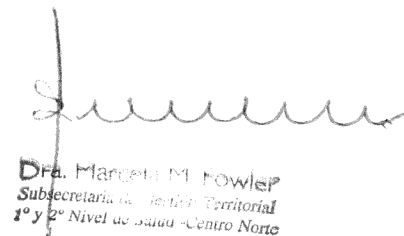 Dra. Marcela M. Fowler
Subsecretaria de Gestión Territorial
1º y 2º Nivel de Salud - Centro Norte